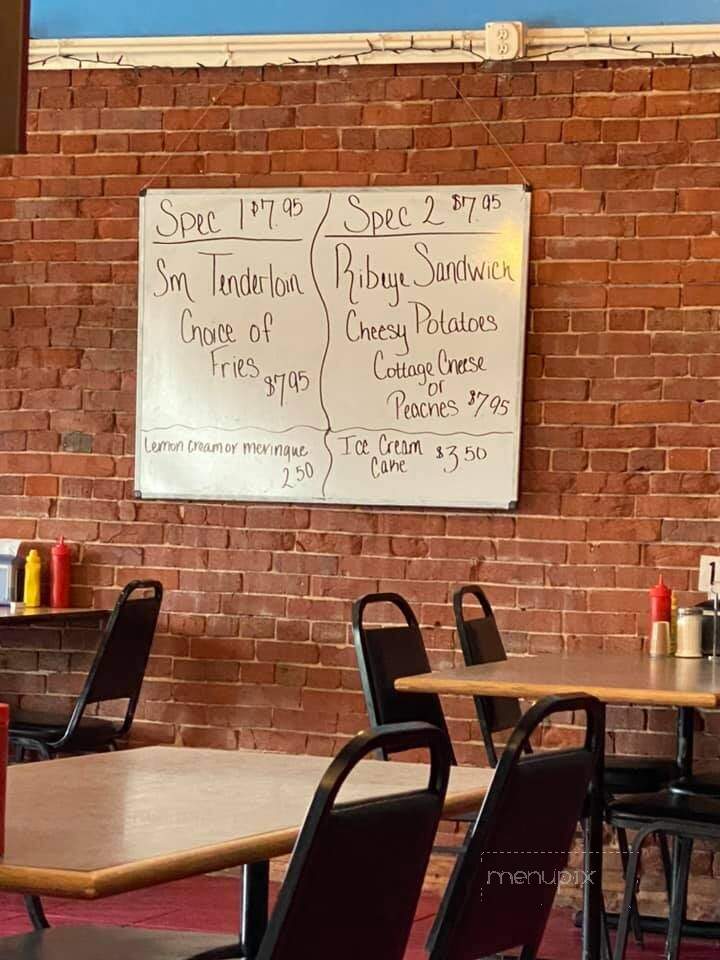 Spec 1 $7.95
Sm Tenderloin
Choice of
Fries
$7.95
Spec 2 $7.95
Ribeye Sandwich
Cheesy Potatoes
Cottage Cheese
or
Peaches $7.95
Lemon cream or meringue
2.50
Ice Cream
Cake $3.50
1
menupix